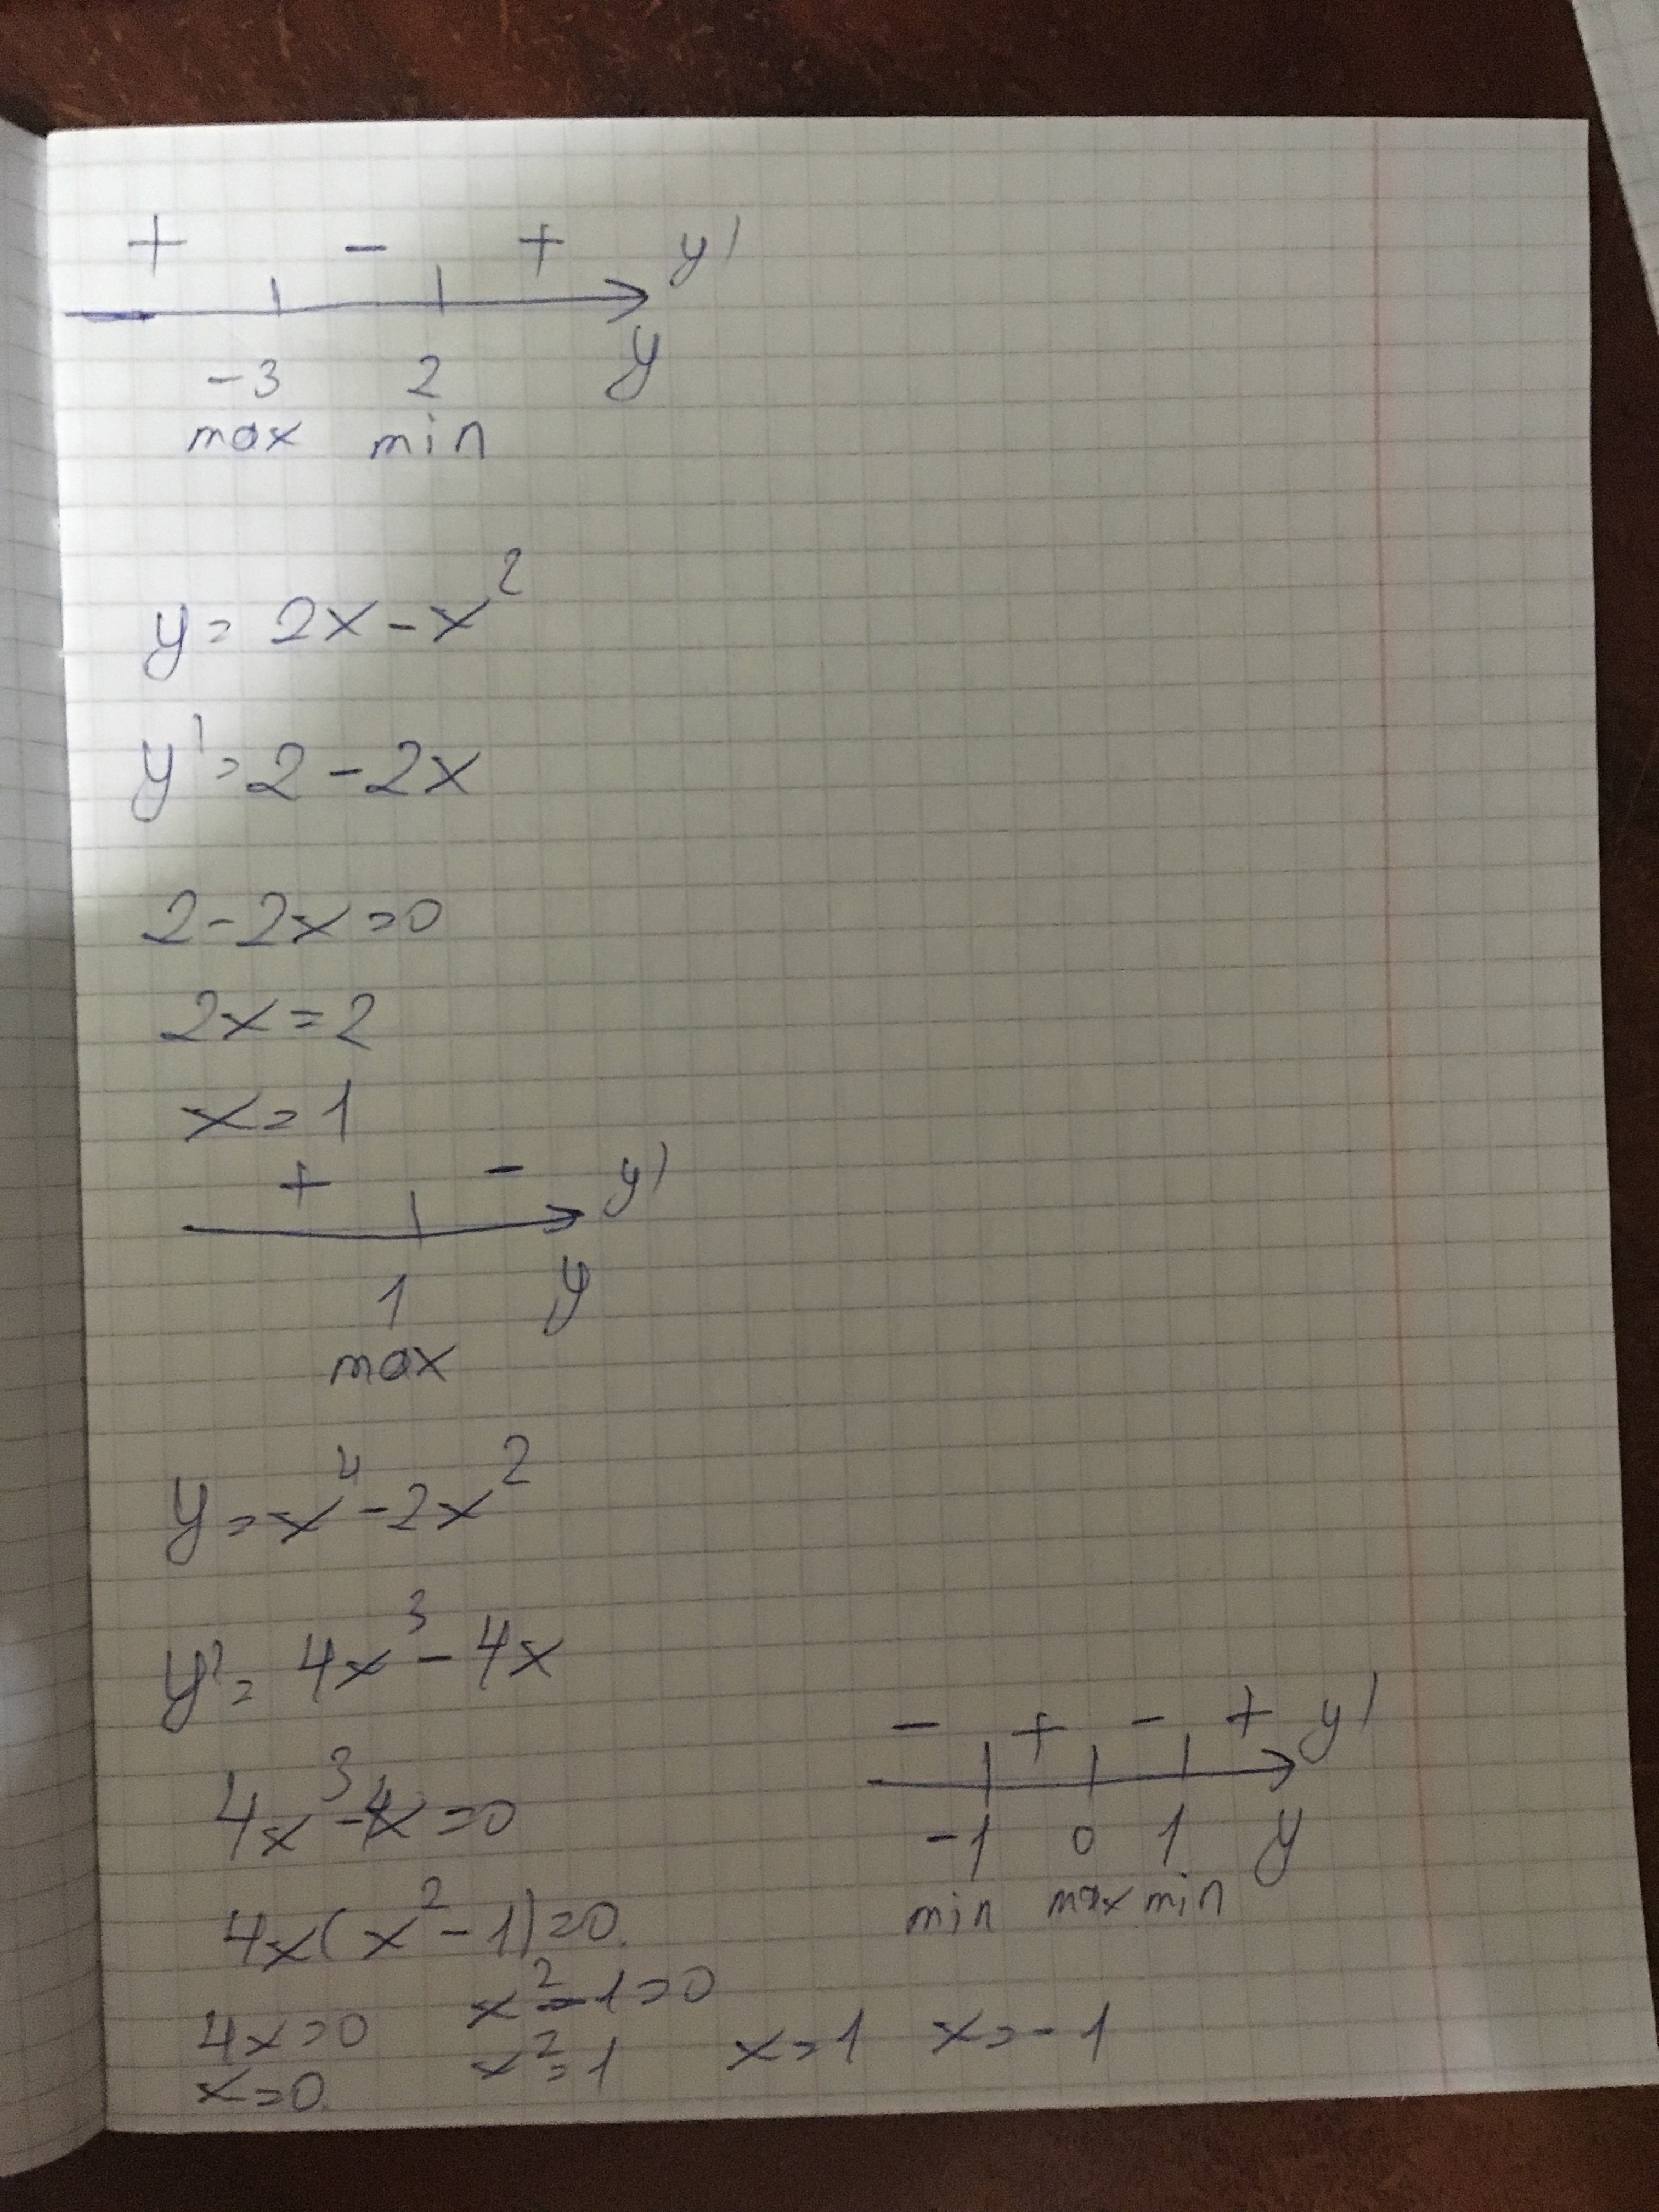 + - + y'
-3 2 y
max min
y = 2x - x²
y' = 2 - 2x
2 - 2x = 0
2x = 2
x = 1
+ - y'
1 y
max
y = x⁴ - 2x²
y' = 4x³ - 4x
4x³ - 4x = 0
4x(x² - 1) = 0.
4x = 0 x² - 1 = 0
x = 0. x² = 1 x = 1 x = -1
- + - + y'
-1 0 1 y
min max min